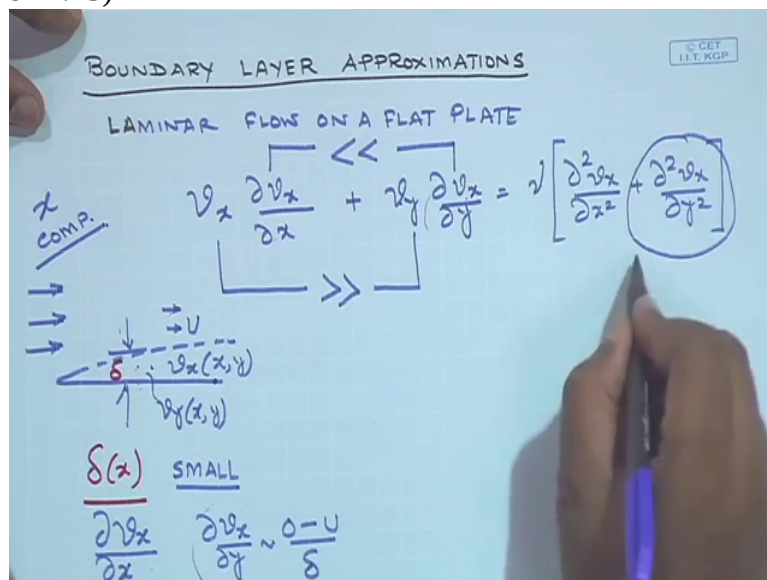 BOUNDARY LAYER APPROXIMATIONS
© CET
I.I.T. KGP
LAMINAR FLOW ON A FLAT PLATE
<<
x COMP.
𝑣x ∂𝑣x/∂x + 𝑣y ∂𝑣x/∂y = ν [∂²𝑣x/∂x² + ∂²𝑣x/∂y²]
>>
U
δ 𝑣x(x,y)
𝑣y(x,y)
δ(x) SMALL
∂𝑣x/∂x ∂𝑣x/∂y ~ 0-U/δ